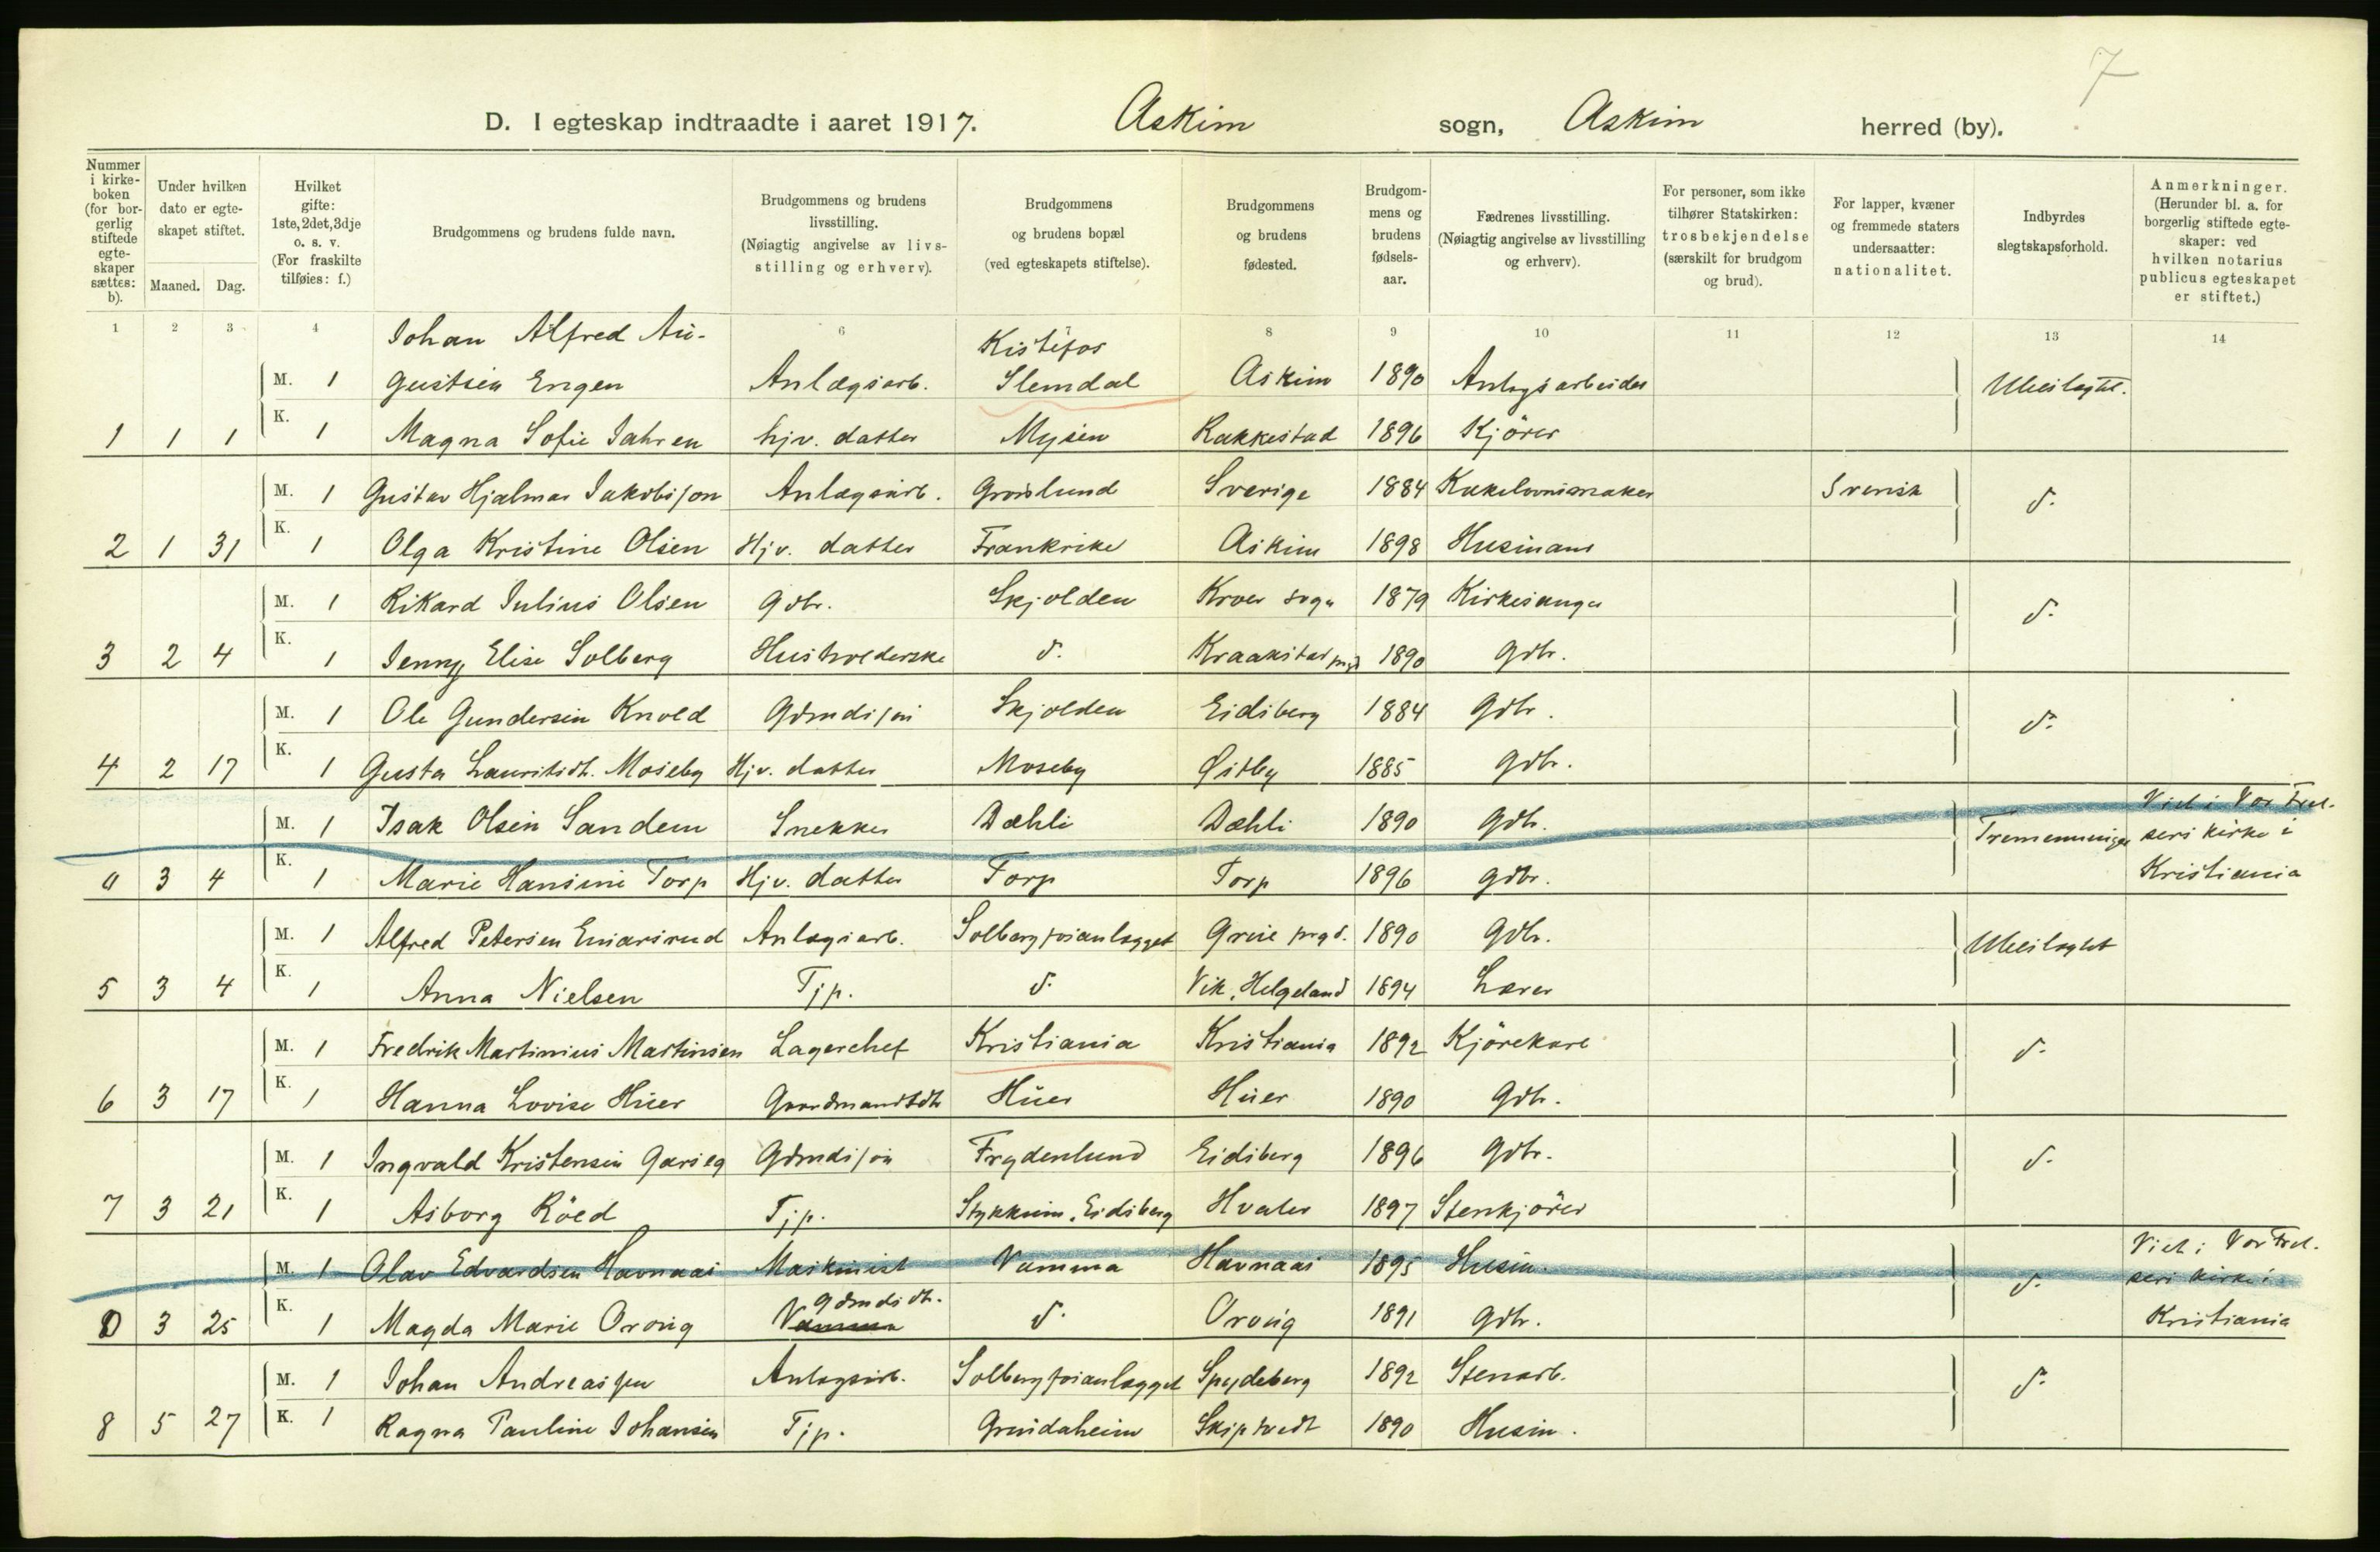 7
D. I egteskap indtraadte i aaret 1917. Askim sogn, Askim herred (by).
Nummer i kirke-boken (for bor-gerlig stiftede egte-skaper sættes: b).
Under hvilken dato er egte-skapet stiftet.
Maaned. Dag.
Hvilket gifte: 1ste, 2det, 3dje o. s. v. (For fraskilte tilføies: f.)
Brudgommens og brudens fulde navn.
Brudgommens og brudens livsstilling. (Nøiagtig angivelse av livs-stilling og erhverv).
Brudgommens og brudens bopæl (ved egteskapets stiftelse).
Brudgommens og brudens fødested.
Brudgom-mens og brudens fødsels-aar.
Fædrenes livsstilling. (Nøiagtig angivelse av livsstilling og erhverv).
For personer, som ikke tilhører Statskirken: trosbekjendelse (særskilt for brudgom og brud).
For lapper, kvæner og fremmede staters undersaatter: nationalitet.
Indbyrdes slegtskapsforhold.
Anmerkninger. (Herunder bl. a. for borgerlig stiftede egte-skaper: ved hvilken notarius publicus egteskapet er stiftet.)
1 2 3 4 6 7 8 9 10 11 12 13 14
Johan Alfred Au- Kistefos
M. 1 gustsen Engen Anlægsarb. Slemdal Askim 1890 Anlegsarbeider Ubeslegtet.
1 1 1 K. 1 Magna Sofie Jahren hjv. datter Mysen Rakkestad 1896 Kjörer
M. 1 Gustav Hjalmar Jakobsson Anlægsarb. Grønlund Sverige 1884 Kakelovnsmaker Svensk d.
2 1 31 K. 1 Olga Kristine Olsen Hjv. datter Frankrike Askim 1898 Husmand
M. 1 Rikard Julius Olsen Gdbr. Skjolden Kroer sogn 1879 Kirkesanger d.
3 2 4 K. 1 Jenny Elise Solberg Husholderske d. Kraakstad prgd 1890 Gdbr.
M. 1 Ole Gundersen Knold Gdmdssøn Skjolden Eidsberg 1884 Gdbr. d.
4 2 17 K. 1 Gusta Lauritsdt. Moseby Hjv. datter Moseby Østby 1885 Gdbr.
M. 1 Isak Olsen Sandem Snekker Dæhli Dæhli 1890 Gdb. Tremenninger Viet i Vor Frel-
sers kirke i
0 3 4 K. 1 Marie Hansine Torp Hjv. datter Torp Torp 1896 Gdbr. Kristiania
M. 1 Alfred Petersen Anlegsarb. Solbergfosanlegget Grue prgd. 1890 Gdbr. Ubeslegtet
5 3 4 K. 1 Anna Nielsen Tjp. d. Vik, Helgeland 1894 Lærer
M. 1 Fredrik Martinius Martinsen Lagerchef Kristiania Kristiania 1892 Kjörekarl d.
6 3 17 K. 1 Hanna Lovise Huer Gaardmandsdtr Huer Huer 1890 Gdb.
M. 1 Ingvald Kristensen Garseg Gdmdssøn Frydenlund Eidsberg 1896 Gdbr. d.
7 3 21 K. 1 Asborg Röed Tjp. Eidsberg Hvaler 1897 Stenkjörer
M. 1 Olav Edvardsen Havnaas Maskinist Vamma Havnaas 1895 Husm. d. Viet i Vor Frel-
sers kirke i
Gdmdsdt.
0 3 25 K. 1 Magda Marie Oraug Vamma d. Oraug 1891 Gdbr. Kristiania
M. 1 Johan Andreassen Anlegsarb. Solbergfosanlegget Spydeberg 1892 Stenarb. d.
8 5 27 K. 1 Ragna Pauline Johansen Tjp. Grindaheim Skiptvedt 1890 Husm.